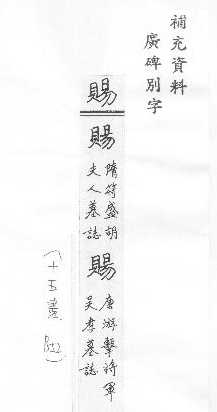 補充資料
廣碑別字
賜
賜
隋符盛胡
夫人墓誌
賜
唐游擊將軍
吳孝墓誌
(十五畫